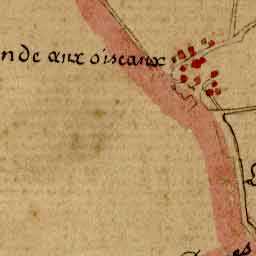 nde aux oiseaux
es